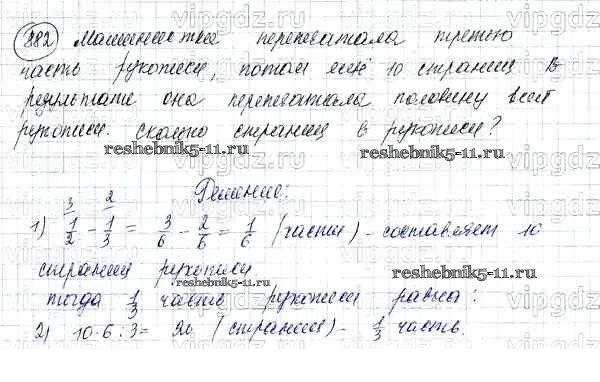 882 Машинистка перепечатала третью
часть рукописи, потом ещё 10 страниц. В
результате она перепечатала половину всей
рукописи. Сколько страниц в рукописи?
reshebnik5-11.ru reshebnik5-11.ru
Решение:
1) 1/2 - 1/3 = 3/6 - 2/6 = 1/6 (части) - составляет 10
страниц рукописи.
reshebnik5-11.ru
тогда 1/3 часть рукописи равна:
2) 10·6:3= 20 (страниц) - 1/3 часть.